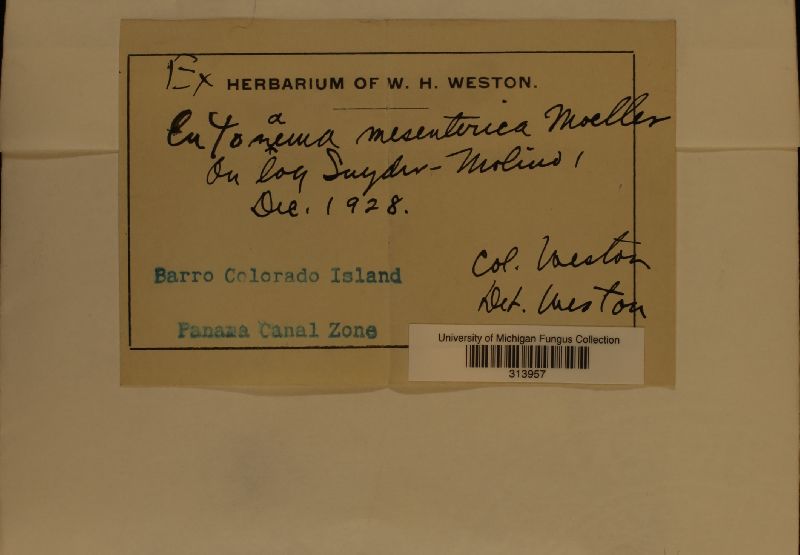 Ex HERBARIUM OF W. H. WESTON.
Entonaema mesenterica Moeller
On log Snyder-Molino 1
Dec. 1928.
Col. Weston
Det. Weston
Barro Colorado Island
Panama Canal Zone
University of Michigan Fungus Collection
313957